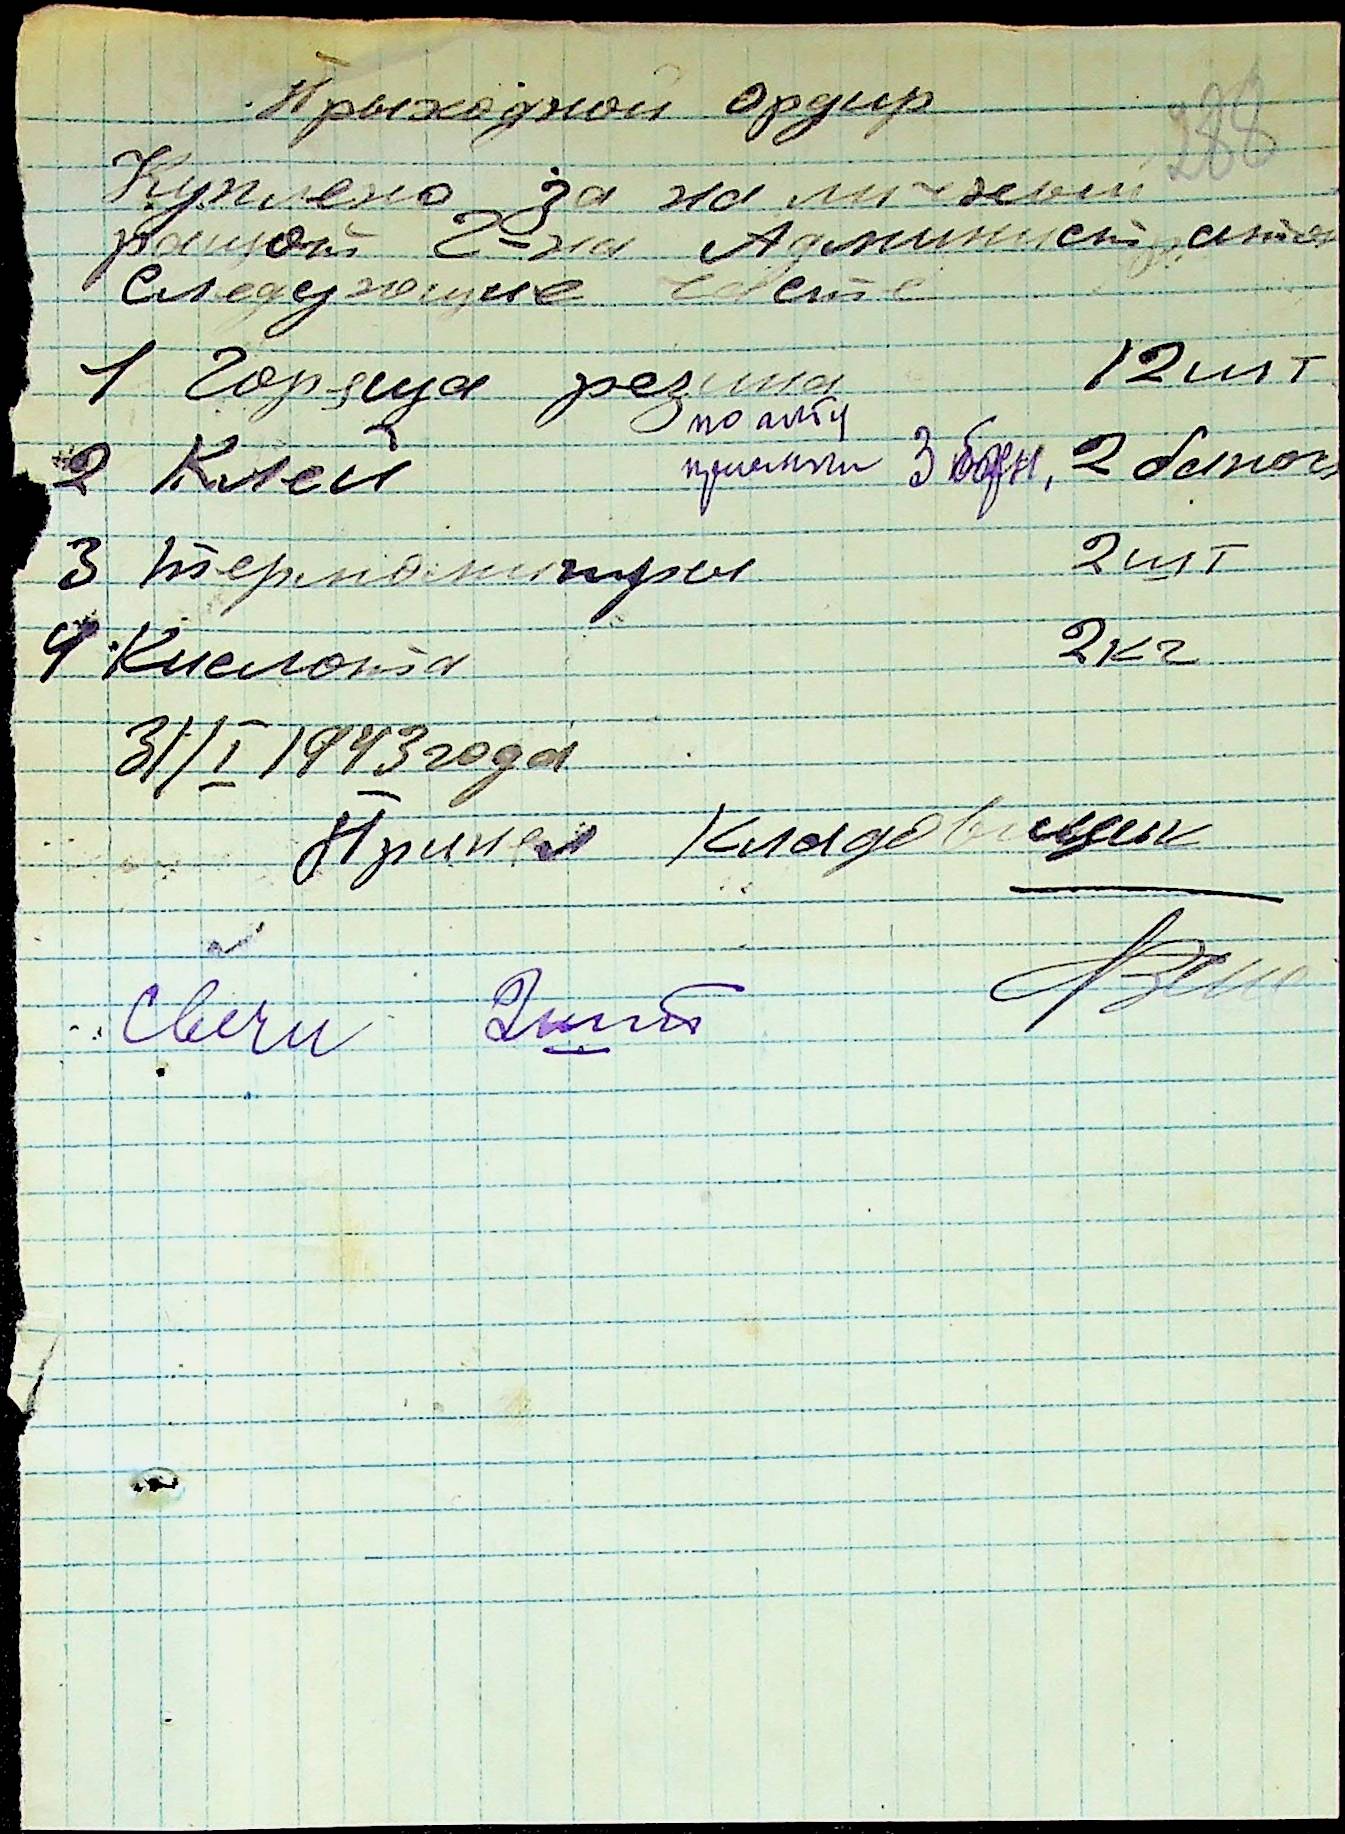 Прыходной Ордир
288
Куплено за на личный
ращот Г-на Администратор
Следующие части
1 Горяща резина 12 шт
2 Клей по акту приемки 3 бан, 2 банок
3 термомитры 2 шт
4 Кислота 2 кг
31/I 1943 года
Принел Кладовищик
Свечи 2 шт